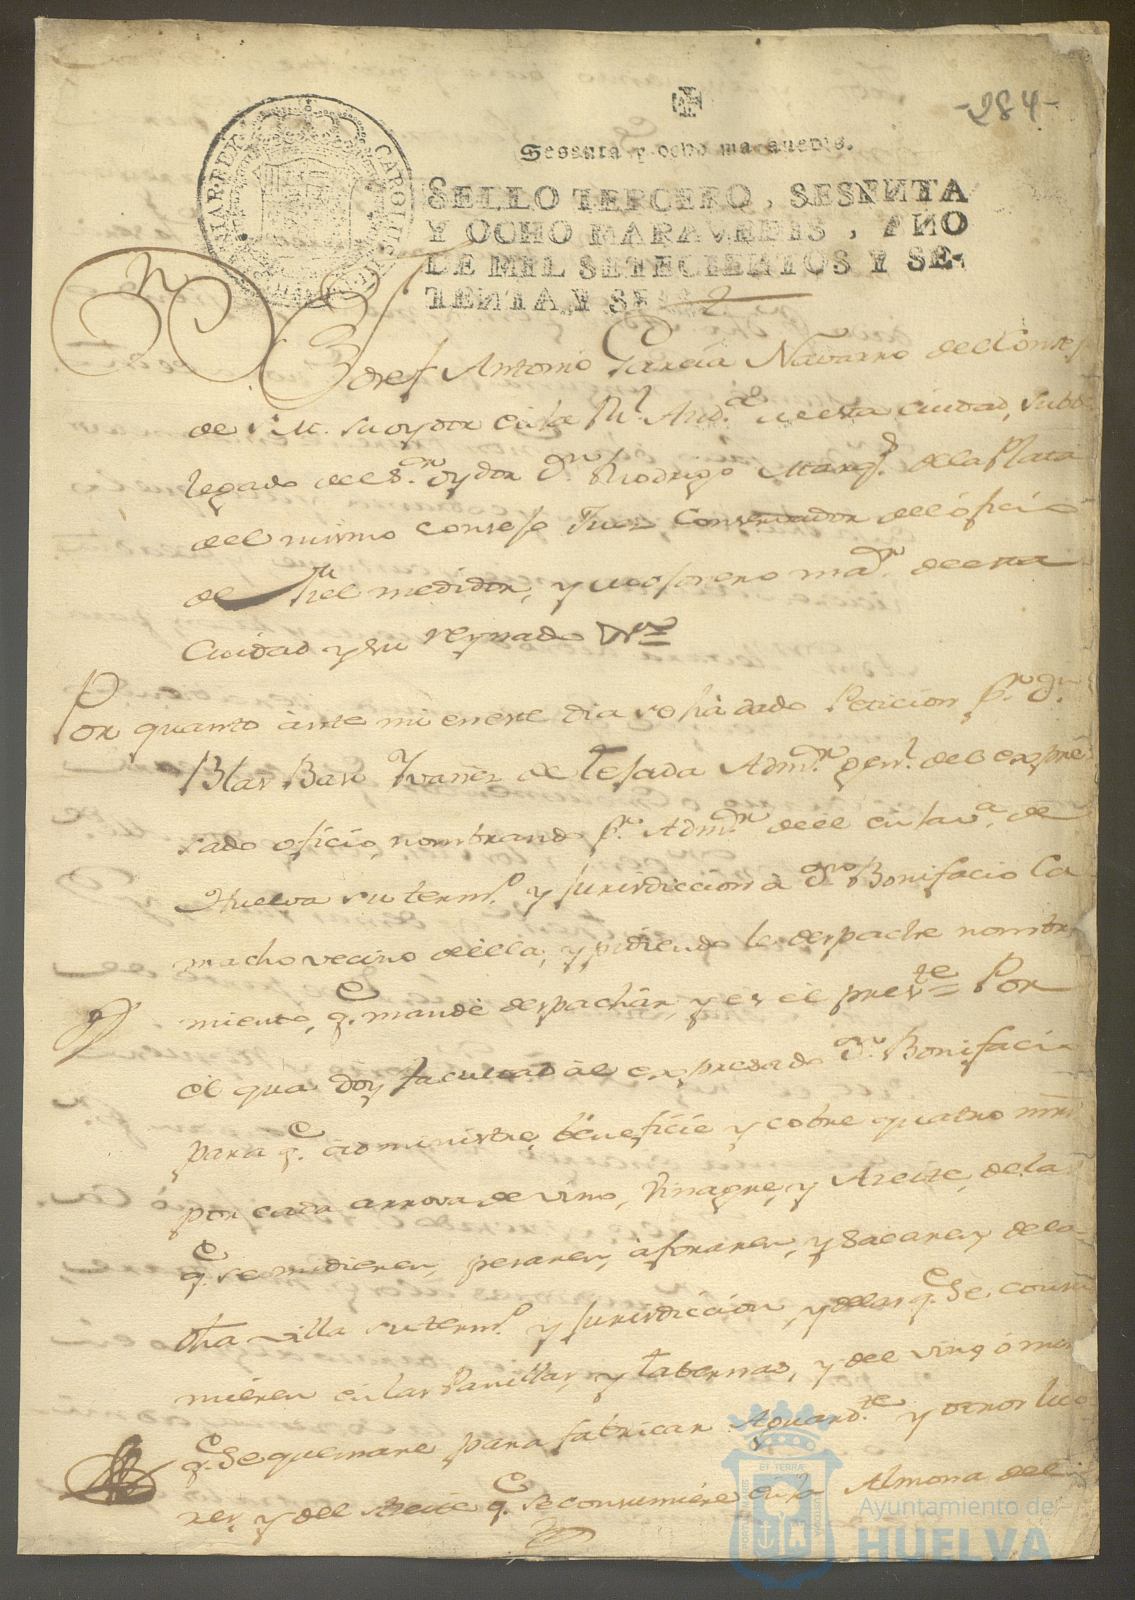 -284-
Sesenta y ocho maravedis.
SELLO TERCERO, SESENTA
Y OCHO MARAVEDIS, AÑO
DE MIL SETECIENTOS Y SE-
TENTA Y
CAROLUS
Dn Josef Antonio Garcia Navarro del Consejo
de S.M. su oydor en la Rl. Audª. de esta ciudad, subde
legado del Sor. oydor Dn. Rodrigo Marqs. de la Plata
del mismo consejo Juez Conservador del ofício
de fiel medidor, y mojonero maor. de esta
Ciudad y su reynado &ª=
Por quanto ànte mi en este dia se hà dado Peticion pr. Dn
Blas Basº Yvañez de Tejada Admor. genl. del expre
sado oficio, nombrando pr. Admor. de el en la va. de
Huelva su termo. y jurisdiccion à Dn. Bonifacio Ca
macho vecino de ella, y pidiendo le despache nombra
miento, q.e mandè despachàr, y es èl preste= Por
el qual doy facultad àl expresado Dn. Bonifacio
para q.e administre, beneficie y cobre quatro mrs.
por cada arrova de vino, Vinagre, y Azeite, de las
q.e se midieren, pesaren, àforaren, y Sacaren de la
dha villa su termo. y jurisdiccion, y de las q.e Se consu
mieren en las Panillas, y tabernas, y del vino ó mos
q.e Se quemare para fabricar Aguardte. y otros lico
res, y del Azeite q.e Se consumiére en la Almona de
Ayuntamiento de
HUELVA